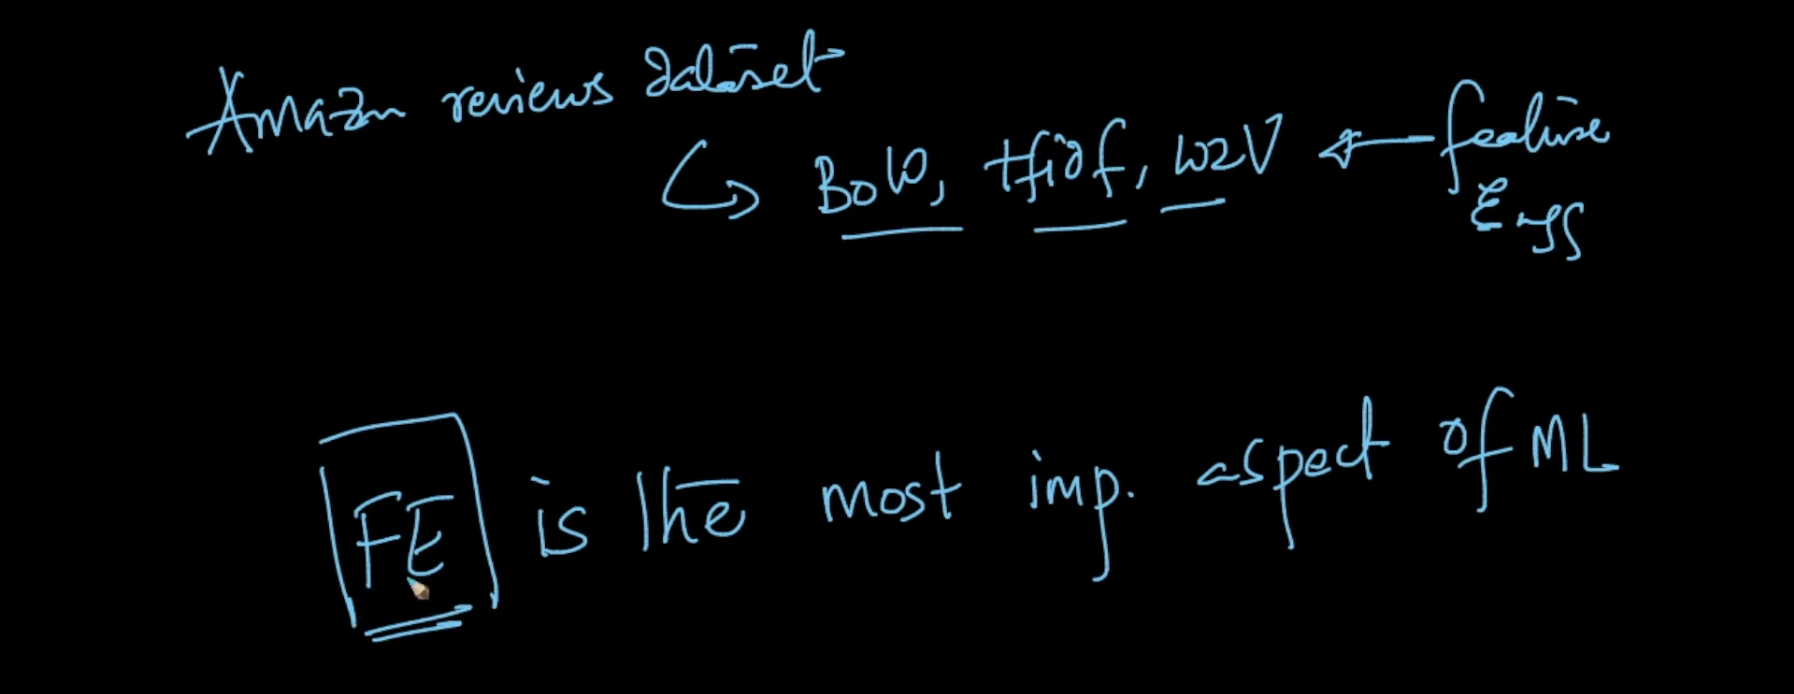 Amazon reviews dataset
↳ BoW, tfidf, W2V ← feature
Engg
FE is the most imp. aspect of ML